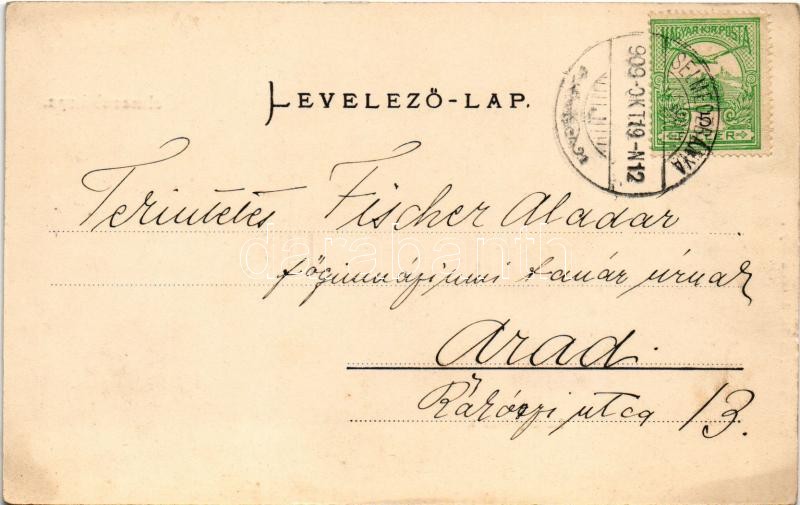 LEVELEZŐ-LAP.
MAGYAR KIR. POSTA
5
SELMECBÁNYA
909 OKT 19-N12
Tekintetes Fischer Aladar
főgimnáziumi tanár úrnak
Arad.
Rákóczi utca 13.
darabanth